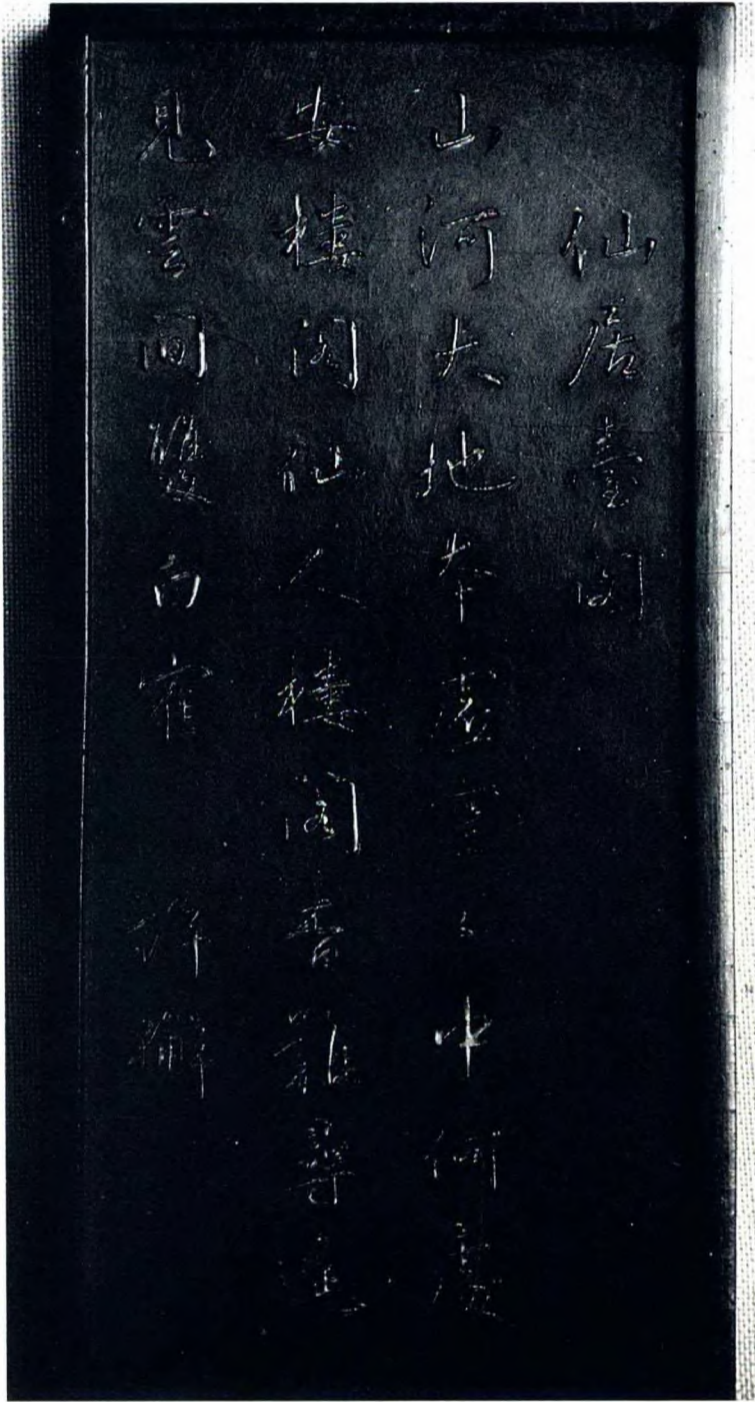 仙居臺閣
山河大地本虛空々中何處
安樓閣仙人樓閣杳難尋遙
見雲間雙白寉 許獬